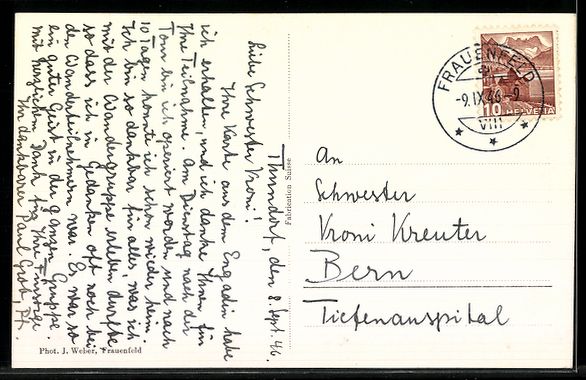 Thundorf, den 8. Sept. 46.
Liebe Schwester Vroni!
Ihre Karte aus dem Engadin habe
ich erhalten, und ich danke Ihnen für
Ihre Teilnahme. Am Dienstag nach der
Tour bin ich operiert worden und nach
10 Tagen konnte ich schon wieder heim.
Ich bin so dankbar für alles, was ich
mit der Wandergruppe erleben durfte
so dass ich in Gedanken oft noch bei
den Wanderteilnehmern war. Es war so
ein guter Geist in der ganzen Gruppe.
Mit herzlichem Dank für Ihre Fürsorge
Ihr dankbarer Paul
Fabrication Suisse
Phot. J. Weber, Frauenfeld
FRAUENFELD
-9.IX.46.-9
VIII
10 HELVETIA
An
Schwester
Vroni Kreuter
Bern
Tiefenauspital